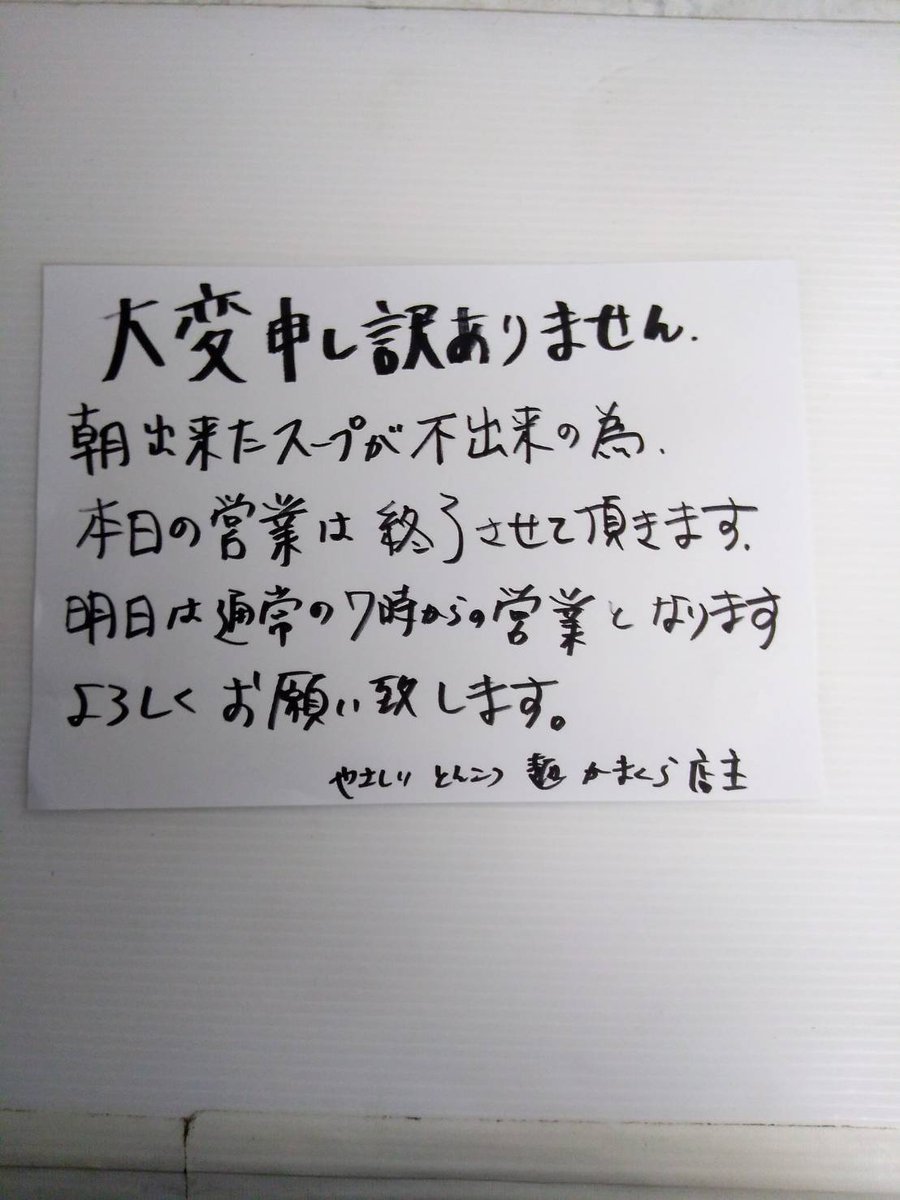 大変申し訳ありません.
朝出来たスープが不出来の為、
本日の営業は終了させて頂きます.
明日は通常の7時からの営業となります
よろしくお願い致します。
やさしいとんこつ 麺 かまくら店主